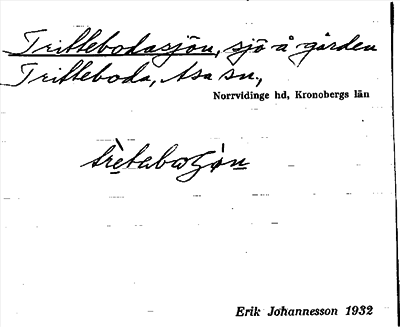 Tritlebodasjön, sjö å gården
Tritleboda, Asa sn.,
Norrvidinge hd, Kronobergs län
Erik Johannesson 1932